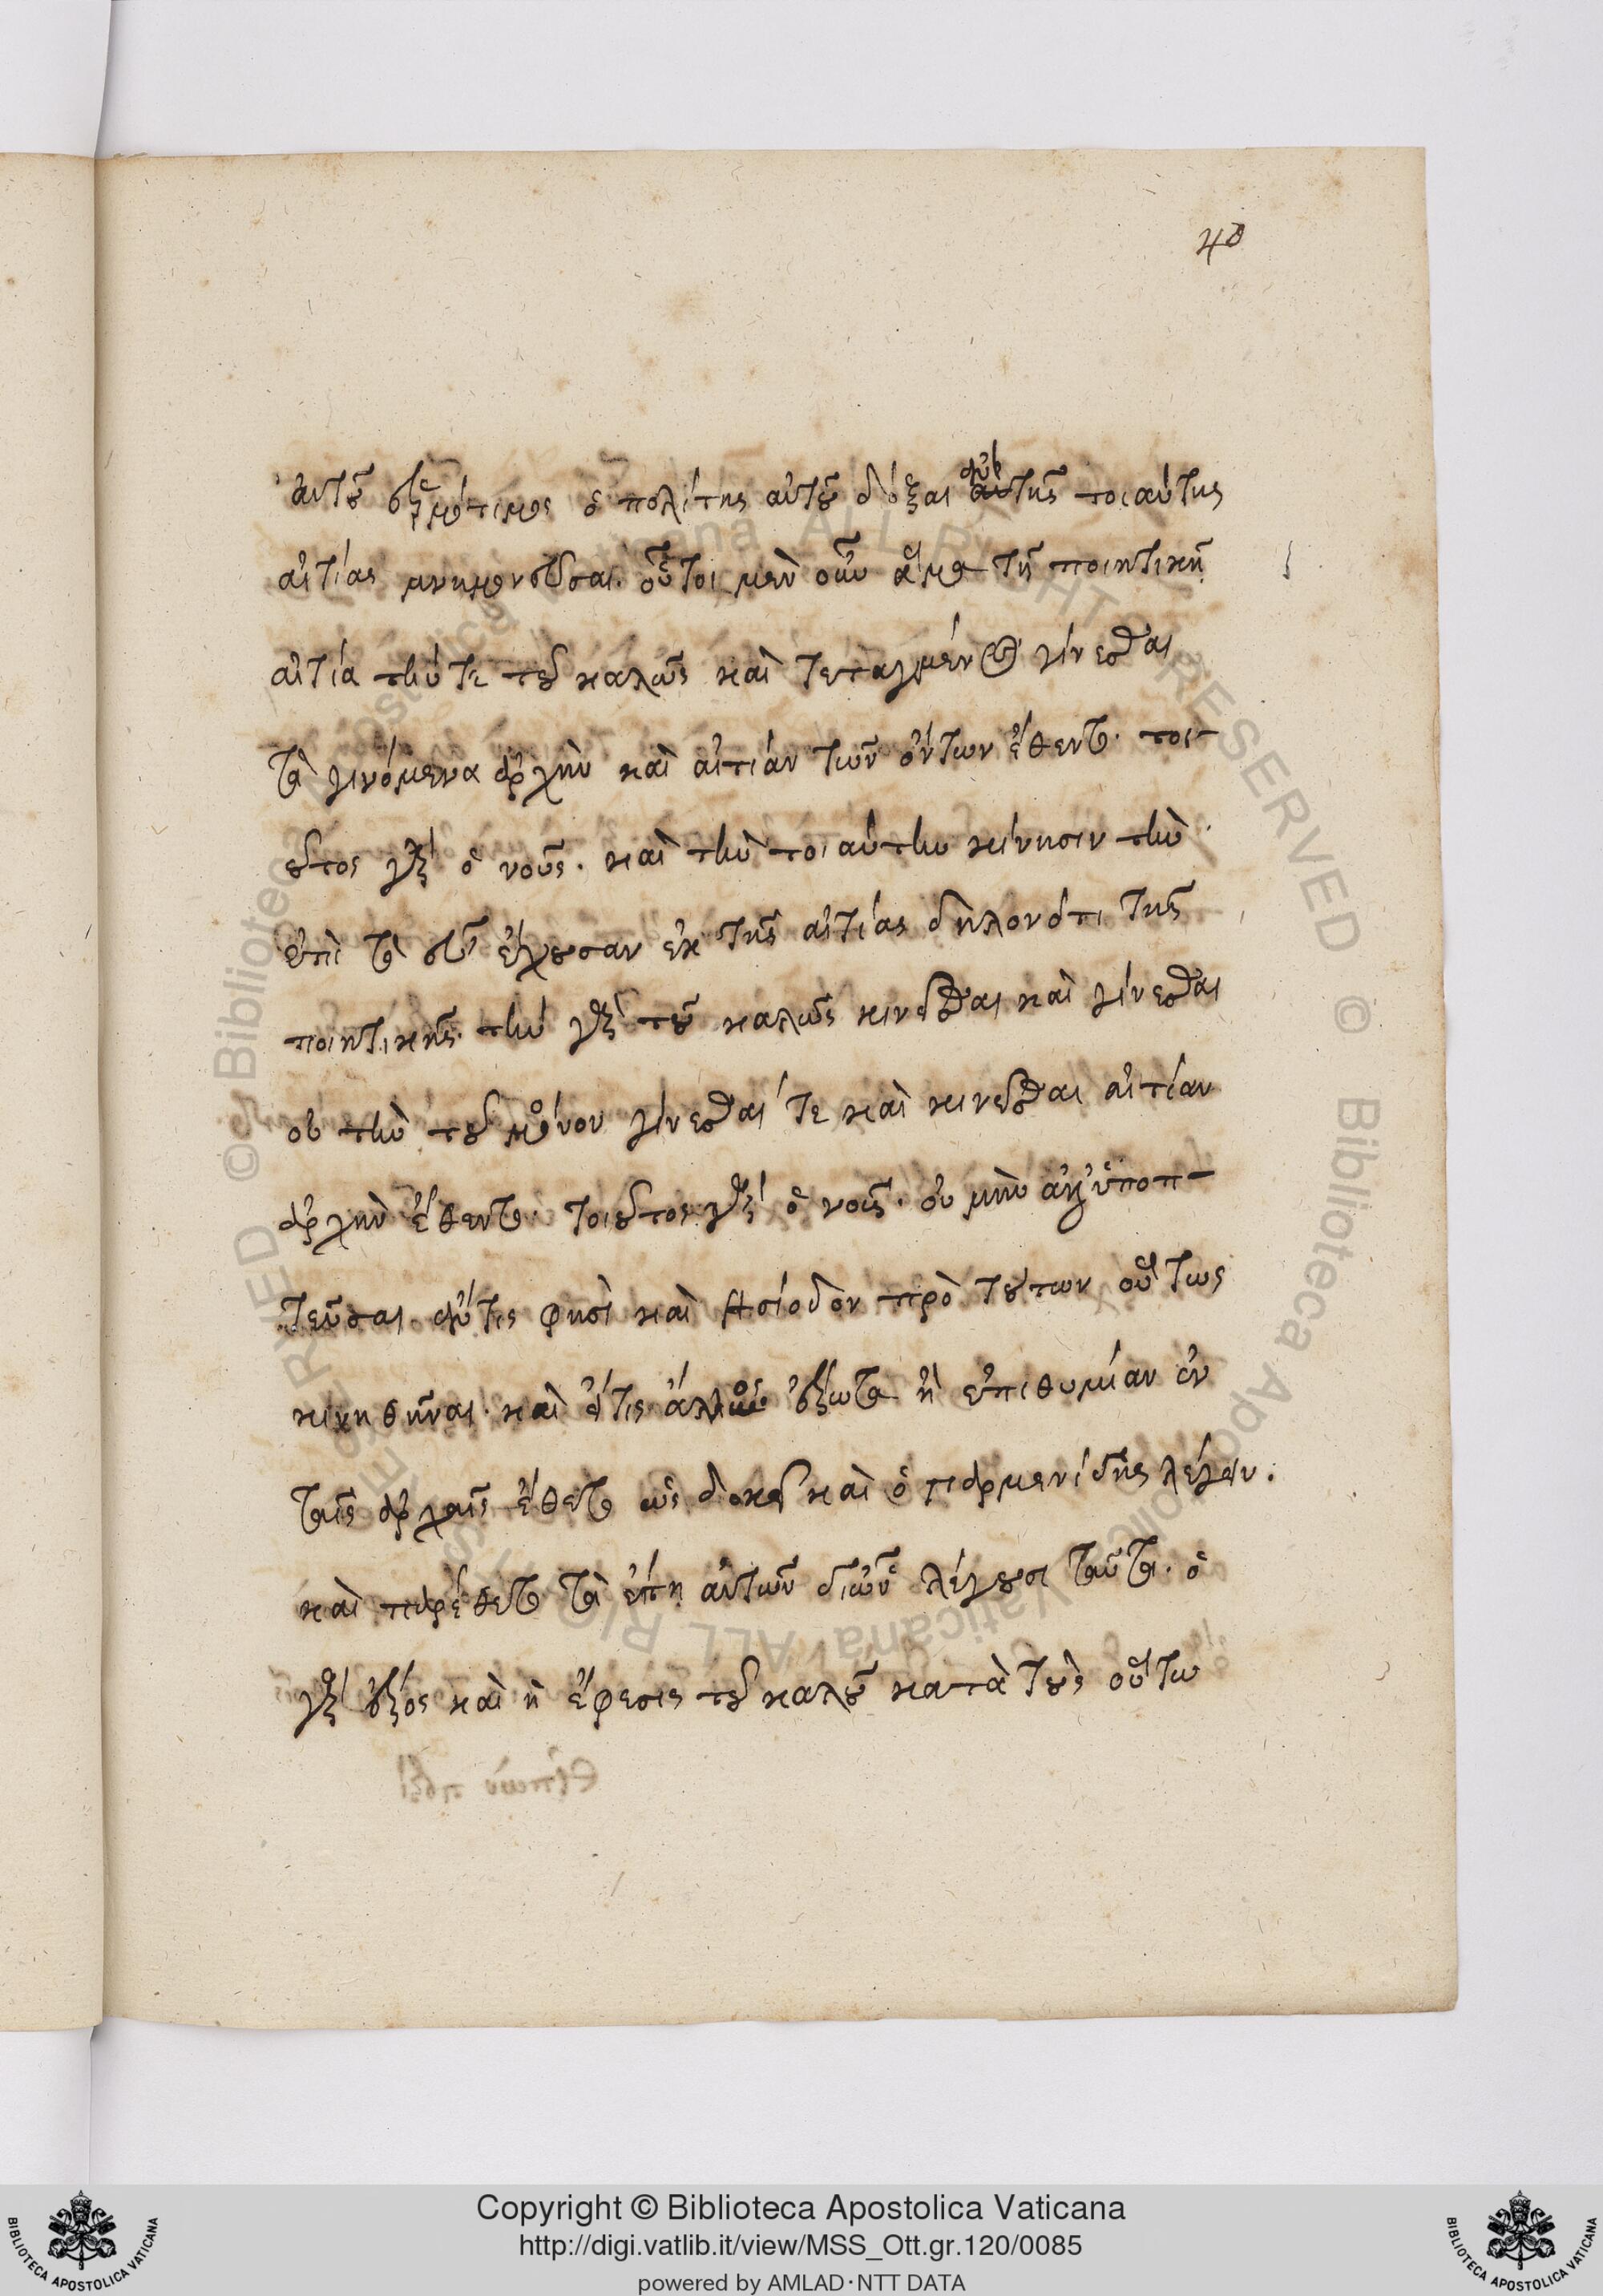 40
αὐτοῦ ἑρμότιμος ὁ πολίτης αὐτοῦ δόξαι αὐτῆς τοιαύτης
αἰτίας μνημονεῦσαι. οὗτοι μὲν οὖν ἅμα τῇ ποιητικῇ
αἰτία τήν τε τοῦ καλῶς καὶ τεταγμένως γίνεσθαι
τὰ γινόμενα ἀρχὴν καὶ αἰτίαν τῶν ὄντων ἔθεντο. τοι-
οῦτος γὰρ ὁ νοῦς. καὶ τὴν τοιαύτην κίνησιν τὴν
ἐπὶ τὸ εὖ ἔχουσαν ἐκ τῆς αἰτίας δηλονότι τῆς
ποιητικῆς. τὴν γὰρ τοῦ καλῶς κινεῖσθαι καὶ γίνεσθαι
οὐ τὴν τοῦ μόνον γίνεσθαί τε καὶ κινεῖσθαι αἰτίαν
ἀρχὴν ἔθεντο. τοιοῦτος γὰρ ὁ νοῦς. οὐ μὴν ἀλλ' ὑποπ-
τεῦσαι ἄν τις φησὶ καὶ ἡσίοδον πρὸ τούτων οὕτως
κινηθῆναι. καὶ εἴ τις ἄλλος ἔρωτα ἢ ἐπιθυμίαν ἐν
ταῖς ἀρχαῖς ἔθετο ὡς δοκεῖ καὶ ὁ παρμενίδης λέγειν.
καὶ παρέθετο τὰ ἔπη αὐτῶν δι' ὧν λέγουσι ταῦτα. ὁ
γὰρ ἔρως καὶ ἡ ἔφεσις τοῦ καλοῦ κατὰ τοὺς οὕτω
Copyright © Biblioteca Apostolica Vaticana
http://digi.vatlib.it/view/MSS_Ott.gr.120/0085
powered by AMLAD·NTT DATA